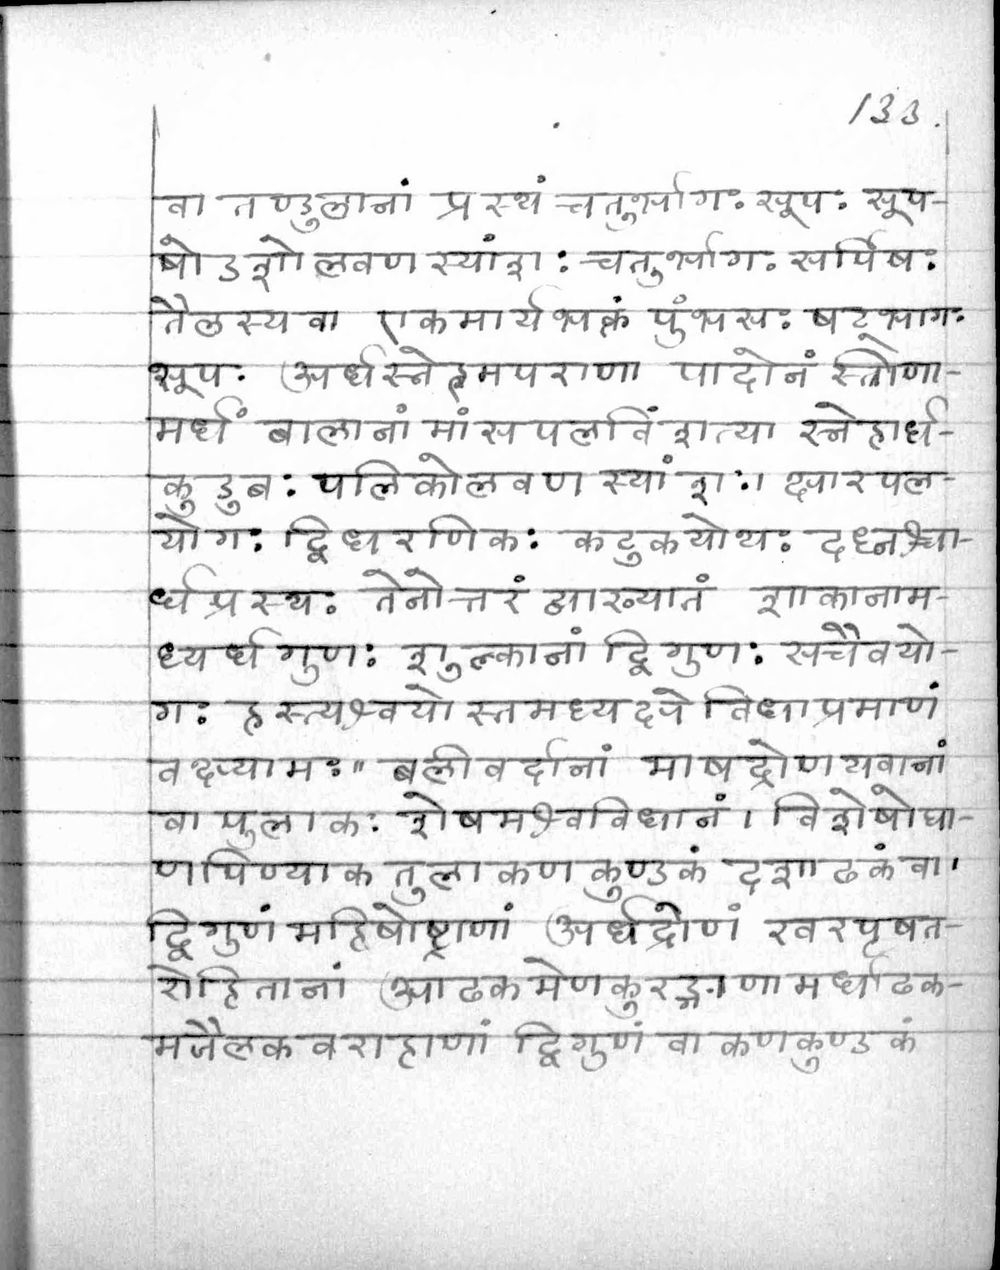 133.
वा तण्डुलानां प्रस्थं चतुर्भागः सूपः सूप-
षोडशो लवणस्यांशः चतुर्भागः सर्पिषः
तैलस्य वा एकमार्यभक्तं पुंभसः षट्भागः
सूपः अर्धस्नेहमपराणा पादोनं स्त्रीणा-
मर्धं बालानां मांसपलविंशत्या स्नेहार्ध-
कुडुबः पलिको लवणस्यांशः। क्षारपल-
योगः द्विधरणिकः कटुकयोथः दध्नश्चा-
र्धप्रस्थः तेनोत्तरं व्याख्यातं शाकानाम-
ध्यर्धगुणः शुल्कानां द्विगुणः सचैवयो-
गः हस्त्यश्वयोस्तमध्यक्षे विधाप्रमाणं
वक्ष्यामः॥ बलीवर्दानां माषद्रोणयवानां
वा पुलाकः शेषमश्वविधानं। विशेषोघा-
णपिण्याकतुला कणकुण्डकं दशाढकं वा।
द्विगुणं महिषोष्ट्राणां अर्धद्रोणं खरपृषत-
रोहितानां आढकमेणकुरङ्गाणामर्धाढक-
मजैलकवराहाणां द्विगुणं वा कणकुण्डकं